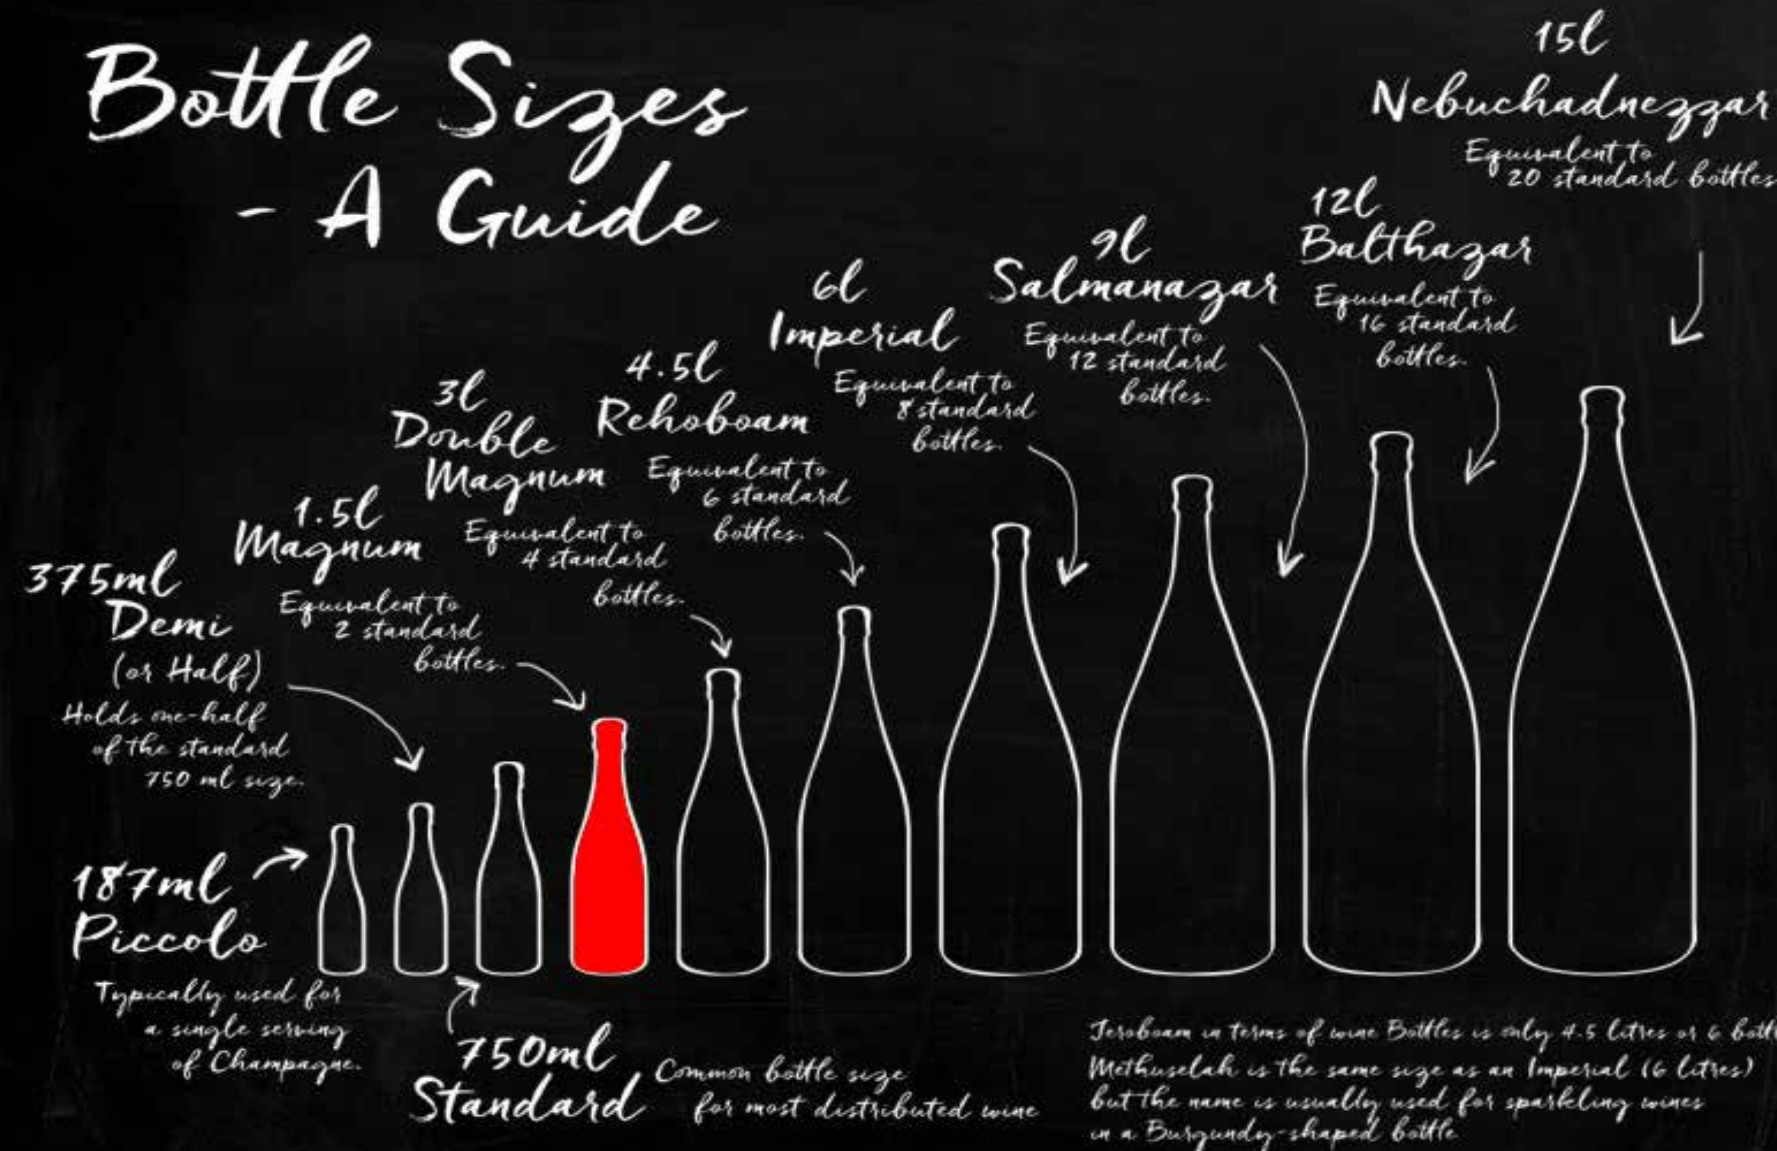 Bottle Sizes
- A Guide
187ml
Piccolo
Typically used for
a single serving
of Champagne.
375ml
Demi
(or Half)
Holds one-half
of the standard
750 ml size.
750ml
Standard
Common bottle size
for most distributed wine
1.5l
Magnum
Equivalent to
2 standard
bottles.
3l
Double
Magnum
Equivalent to
4 standard
bottles.
4.5l
Rehoboam
Equivalent to
6 standard
bottles.
6l
Imperial
Equivalent to
8 standard
bottles.
9l
Salmanazar
Equivalent to
12 standard
bottles.
12l
Balthazar
Equivalent to
16 standard
bottles.
15l
Nebuchadnezzar
Equivalent to
20 standard bottles
Jeroboam in terms of wine Bottles is only 4.5 litres or 6 bott
Methuselah is the same size as an Imperial (6 litres)
but the name is usually used for sparkling wines
in a Burgundy-shaped bottle